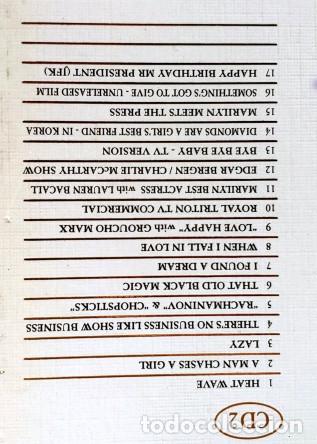 CD2
1 HEAT WAVE
2 A MAN CHASES A GIRL
3 LAZY
4 THERE'S NO BUSINESS LIKE SHOW BUSINESS
5 "RACHMANINOV" & "CHOPSTICKS"
6 THAT OLD BLACK MAGIC
7 I FOUND A DREAM
8 WHEN I FALL IN LOVE
9 "LOVE HAPPY" with GROUCHO MARX
10 ROYAL TRITON TV COMMERCIAL
11 MARILYN BEST ACTRESS with LAUREN BACALL
12 EDGAR BERGEN / CHARLIE McCARTHY SHOW
13 BYE BYE BABY - TV VERSION
14 DIAMONDS ARE A GIRL'S BEST FRIEND - IN KOREA
15 MARILYN MEETS THE PRESS
16 SOMETHING'S GOT TO GIVE - UNRELEASED FILM
17 HAPPY BIRTHDAY MR PRESIDENT (JFK)
todocoleccion